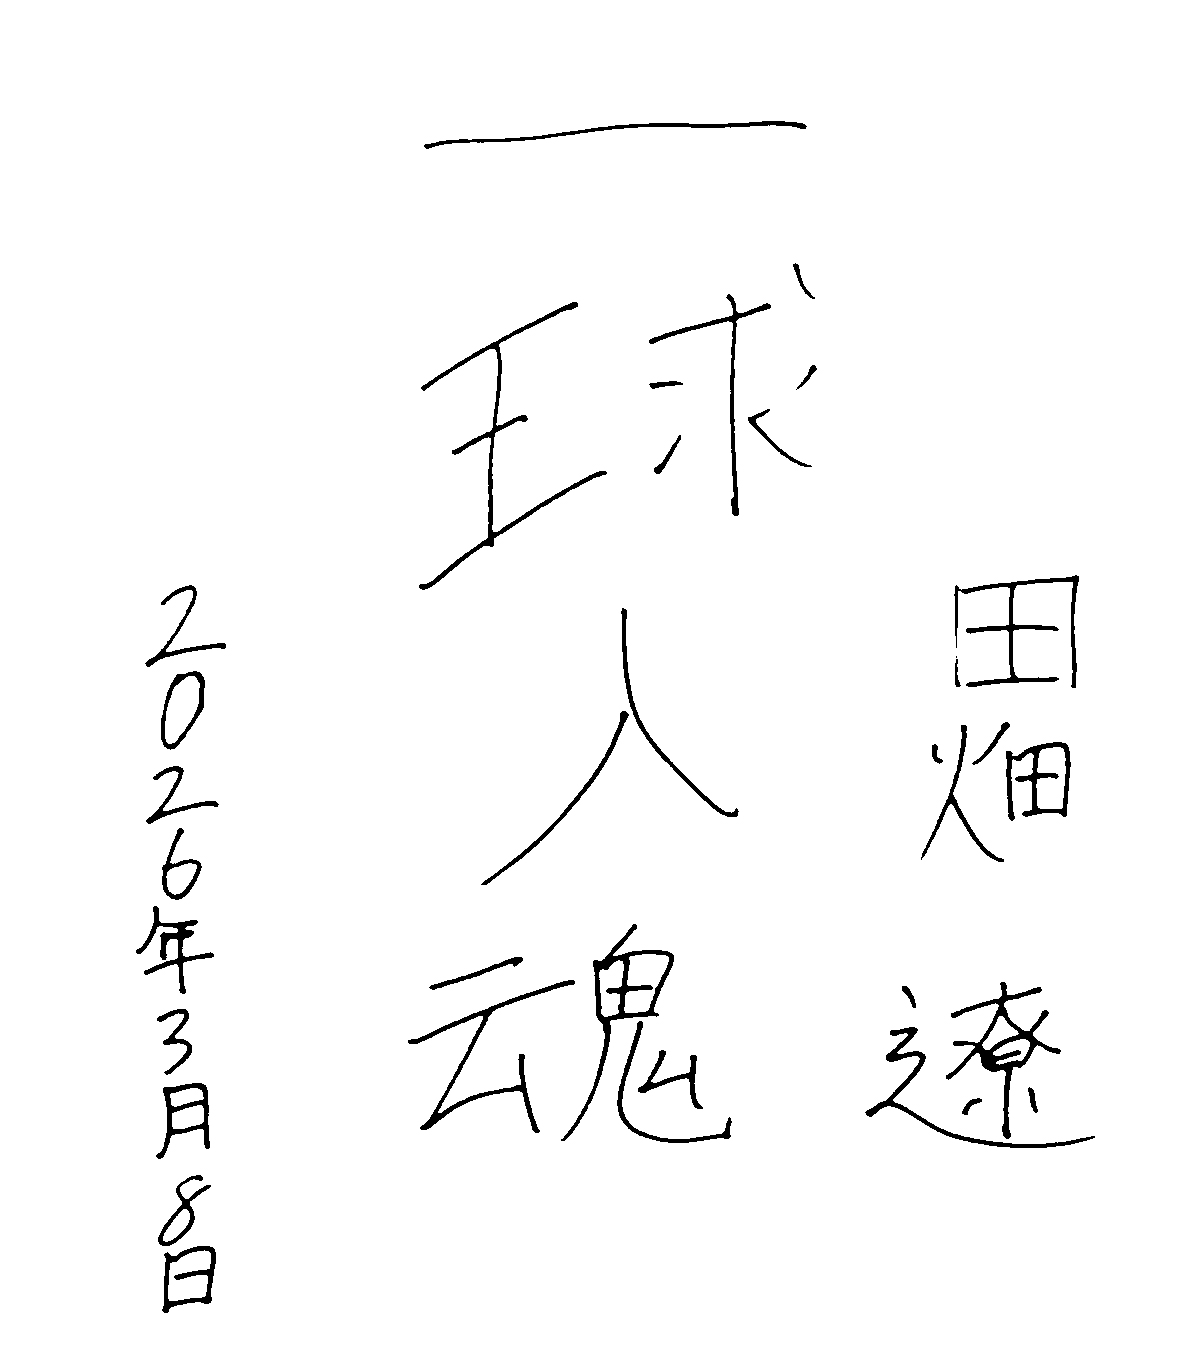 田畑 遼
一球人魂
2026年3月8日